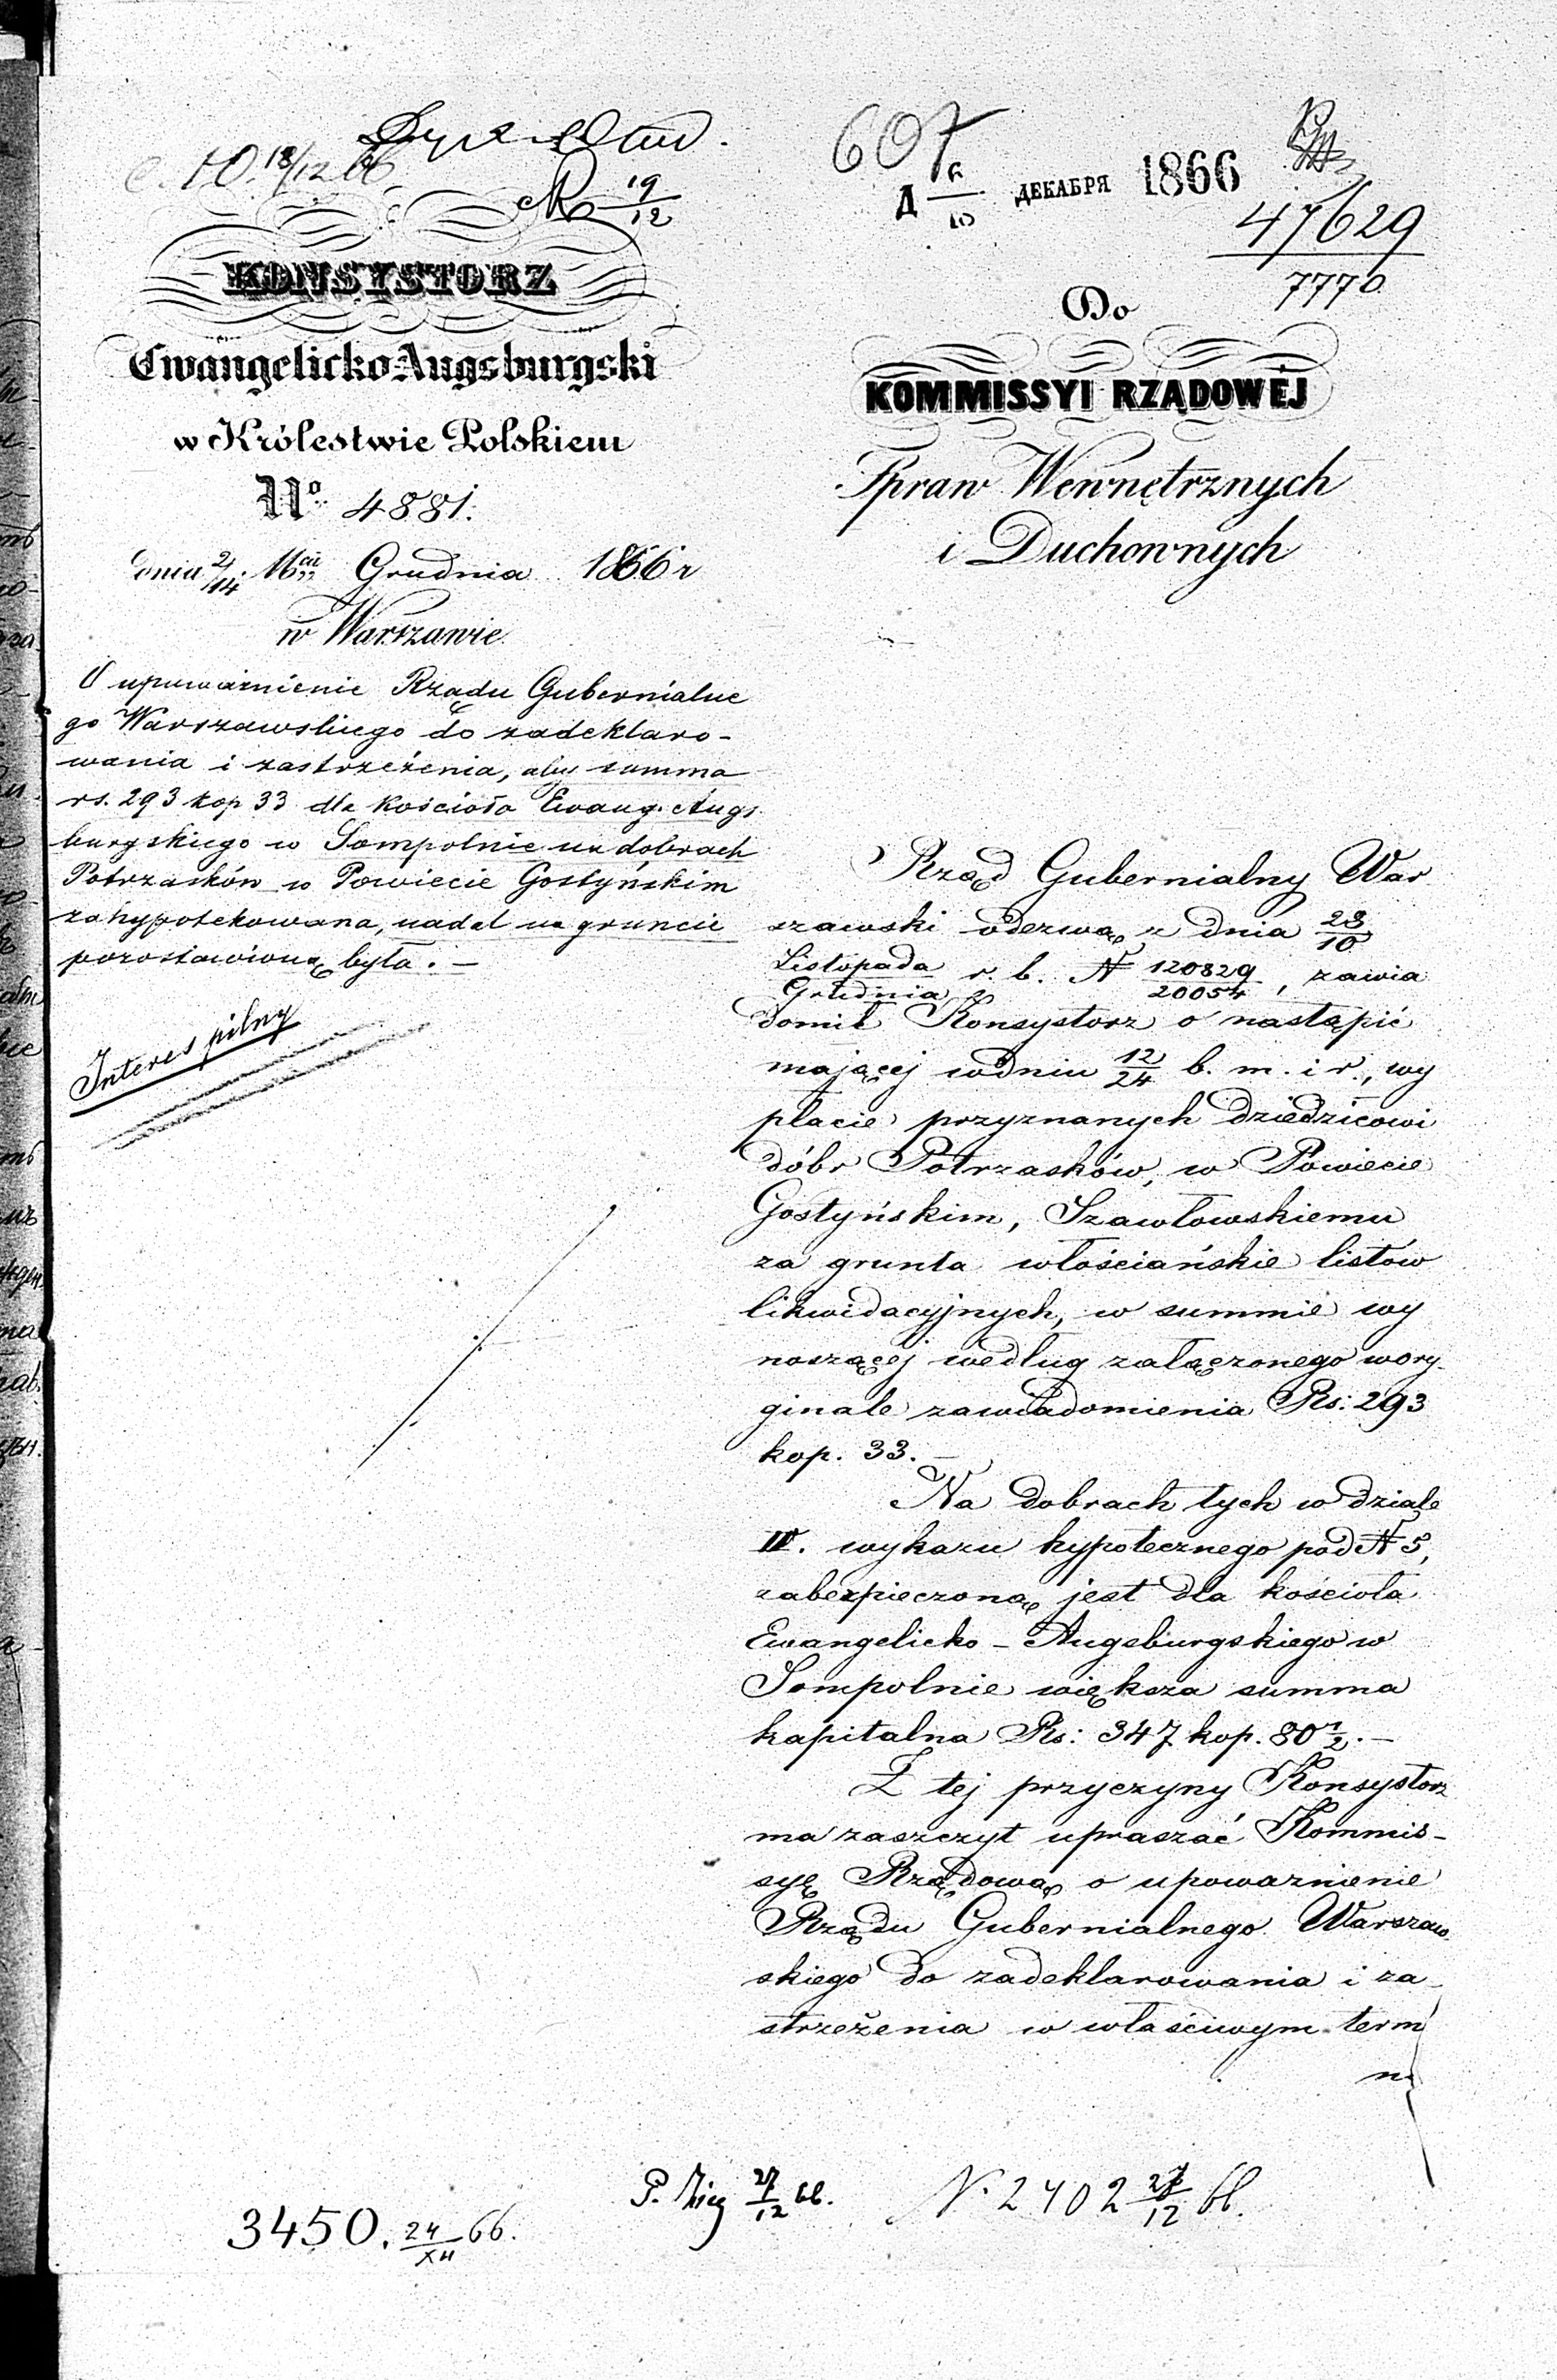 18/12 66
19/12
607
ДЕКАБРЯ 1866
47629
7770
KONSYSTORZ
Ewangelicko-Augsburgski
w Królestwie Polskiem
No. 4881.
dnia 2/14 Mca Grudnia 1866 r
w Warszawie
Do
KOMMISSYI RZĄDOWÉJ
Spraw Wewnętrznych
i Duchownych
O upoważnienie Rządu Gubernialne
go Warszawskiego do zadeklaro-
wania i zastrzeżenia, aby summa
rs. 293 kop 33 dla Kościoła Ewang. Augs
burgskiego w Sompolnie na dobrach
Potrzasków w Powiecie Gostyńskim
zahypotekowana, nadal na gruncie
pozostawioną była. —
Interes pilny
Rząd Gubernialny War
szawski odezwą z dnia 28/10
Listopada/Grudnia r. b. N 120829/20054, zawia
domił Konsystorz o nastąpić
mającej w dniu 12/24 b. m. i r., wy
płacie przyznanych dziedzicowi
dóbr Potrzasków, w Powiecie
Gostyńskim, Szawłowskiemu
za grunta włościańskie listów
likwidacyjnych, w summie wy
noszącej według załączonego w ory-
ginale zawiadomienia Rs: 293
kop. 33. —
Na dobrach tych w dziale
IV. wykazu hypotecznego pod N 5,
zabezpieczoną jest dla kościoła
Ewangelicko-Augsburgskiego w
Sompolnie większa summa
kapitalna Rs: 347 kop. 80 1/2. —
Z tej przyczyny Konsystorz
ma zaszczyt upraszać Kommis-
syę Rządową o upoważnienie
Rządu Gubernialnego Warszaw
skiego do zadeklarowania i za-
strzeżenia w właściwym termi
nie
P. 27/12 66.
N. 2402 27/12 66.
3450. 24/XII 66.